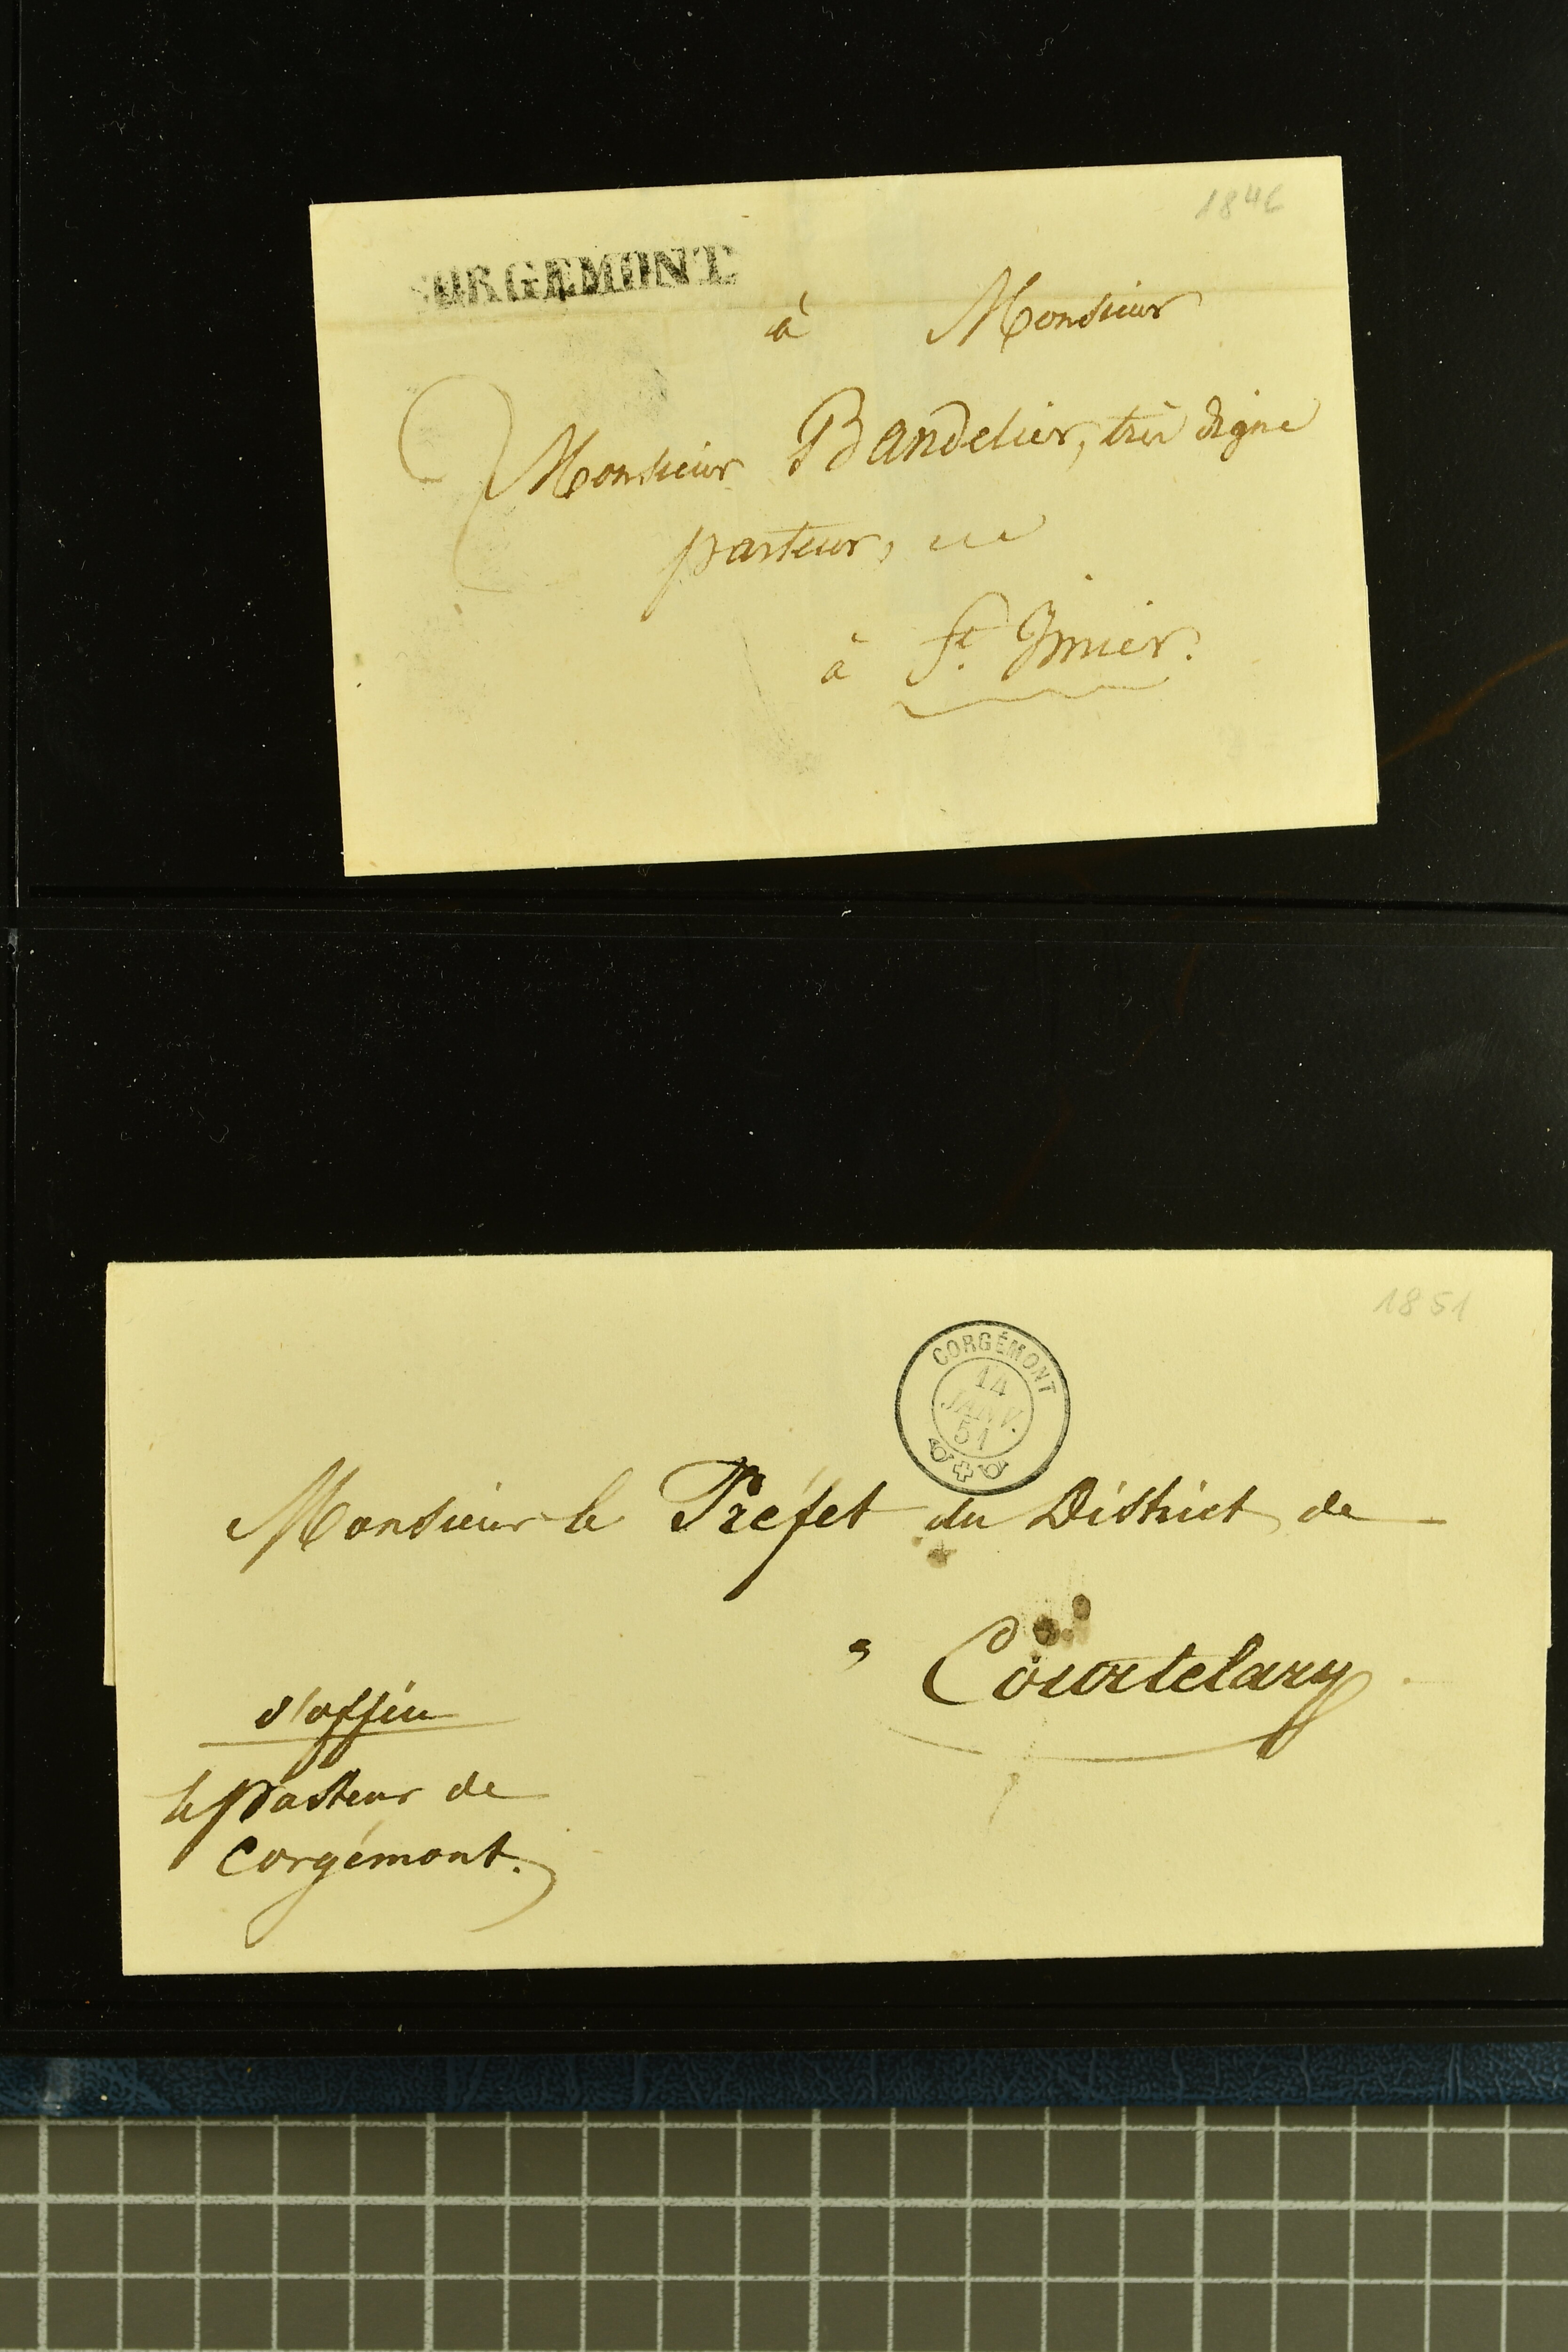 1846
ORGEMONT
à Monsieur
Monsieur Bandelier, très digne
pasteur,
à St. Imier.
1851
CORGÉMONT
14
JANV.
51
Monsieur le Préfet du District de
à Courtelary
d'office
le pasteur de
Corgémont.